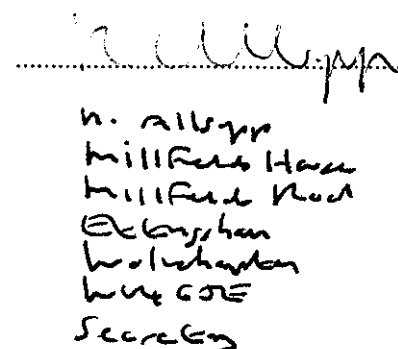 N. Allsopp
Millfields House
Millfields Road
Ettingshall
Wolverhampton
WV4 6JE
Secretary